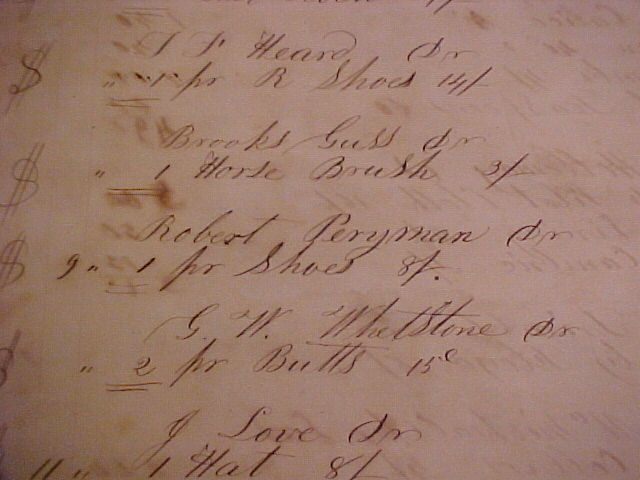 S F Heard Dr
" " 1 pr R Shoes 14/
Brooks Guss Dr
" 1 Horse Brush 3/
Robert Peryman Dr
9 " 1 pr Shoes 8/.
G. W. Whetstone Dr
" 2 pr Butts 15c
J Love Dr
11 " 1 Hat 8/